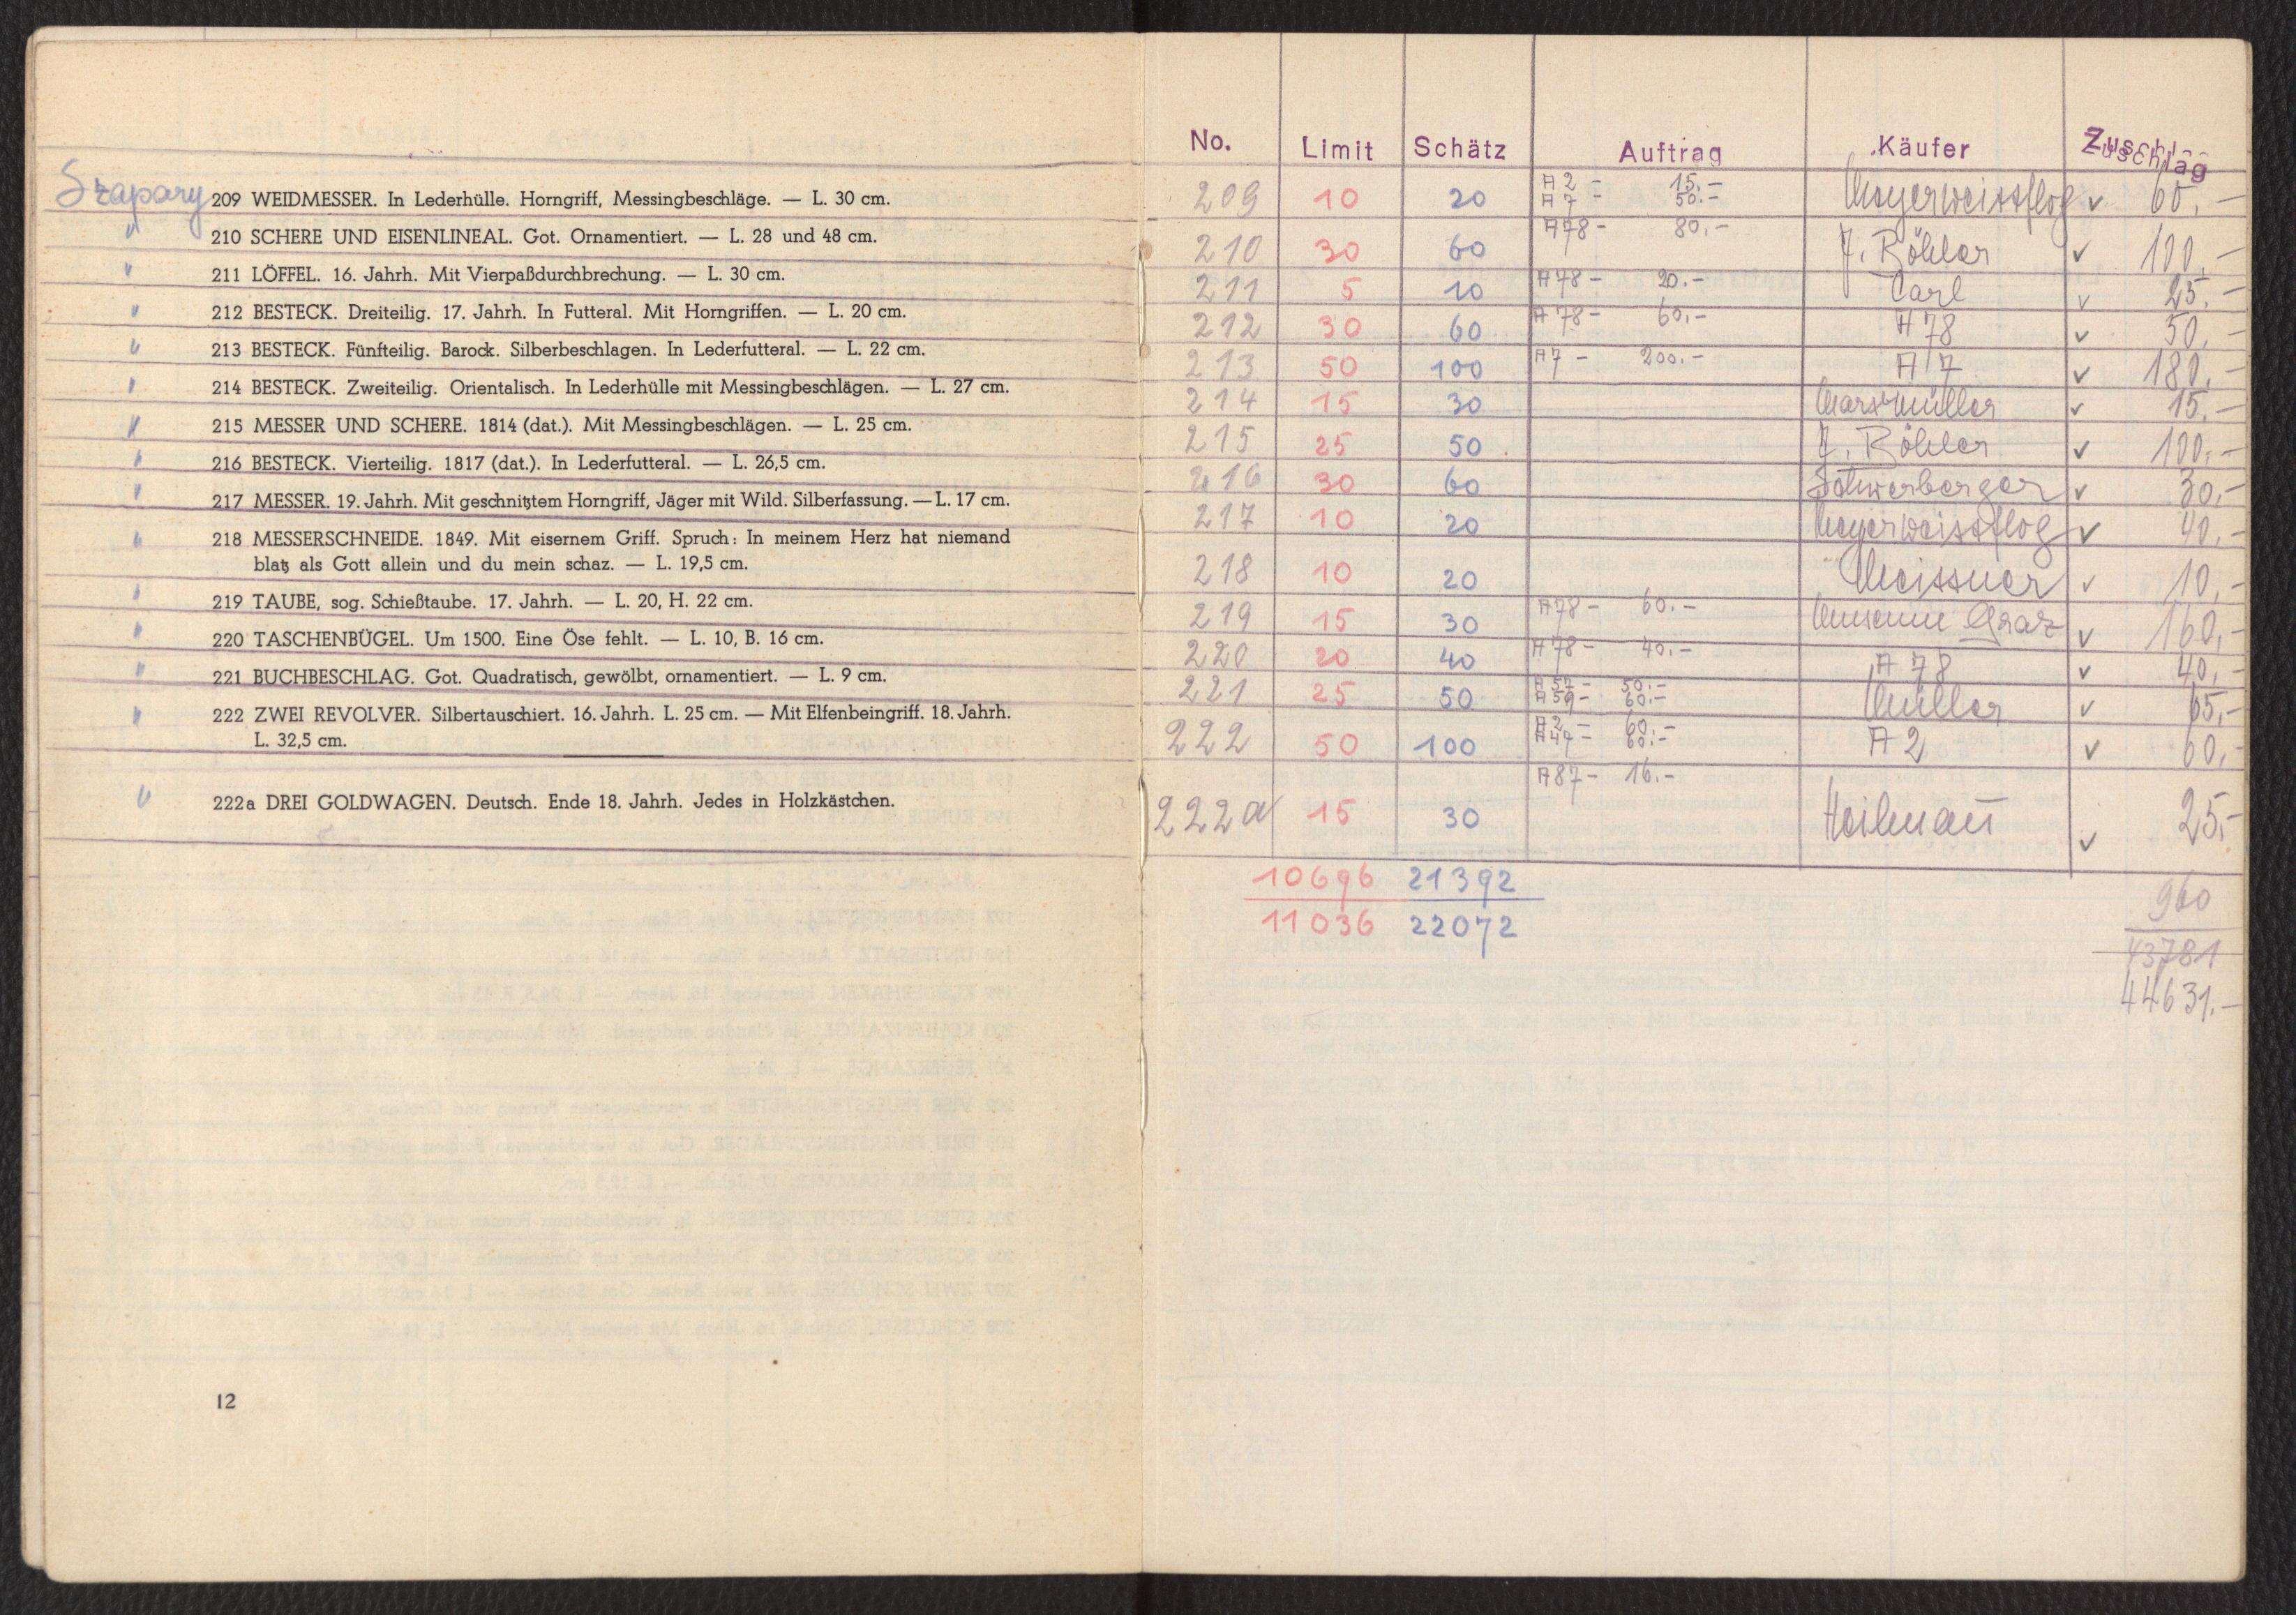 Szapary 209 WEIDMESSER. In Lederhülle. Horngriff, Messingbeschläge. — L. 30 cm.
" 210 SCHERE UND EISENLINEAL. Got. Ornamentiert. — L. 28 und 48 cm.
" 211 LÖFFEL. 16. Jahrh. Mit Vierpaßdurchbrechung. — L. 30 cm.
" 212 BESTECK. Dreiteilig. 17. Jahrh. In Futteral. Mit Horngriffen. — L. 20 cm.
" 213 BESTECK. Fünfteilig. Barock. Silberbeschlagen. In Lederfutteral. — L. 22 cm.
" 214 BESTECK. Zweiteilig. Orientalisch. In Lederhülle mit Messingbeschlägen. — L. 27 cm.
" 215 MESSER UND SCHERE. 1814 (dat.). Mit Messingbeschlägen. — L. 25 cm.
" 216 BESTECK. Vierteilig. 1817 (dat.). In Lederfutteral. — L. 26,5 cm.
" 217 MESSER. 19. Jahrh. Mit geschnitztem Horngriff, Jäger mit Wild. Silberfassung. — L. 17 cm.
" 218 MESSERSCHNEIDE. 1849. Mit eisernem Griff. Spruch: In meinem Herz hat niemand
blatz als Gott allein und du mein schaz. — L. 19,5 cm.
" 219 TAUBE, sog. Schießtaube. 17. Jahrh. — L. 20, H. 22 cm.
" 220 TASCHENBÜGEL. Um 1500. Eine Öse fehlt. — L. 10, B. 16 cm.
" 221 BUCHBESCHLAG. Got. Quadratisch, gewölbt, ornamentiert. — L. 9 cm.
" 222 ZWEI REVOLVER. Silbertauschiert. 16. Jahrh. L. 25 cm. — Mit Elfenbeingriff. 18. Jahrh.
L. 32,5 cm.
" 222a DREI GOLDWAGEN. Deutsch. Ende 18. Jahrh. Jedes in Holzkästchen.
12
No. Limit Schätz Auftrag Käufer Zuschlag
209 10 20 A2 - 15.- A7 - 50.- Meyerweissflog ✓ 60.-
210 30 60 A78 - 80.- J. Böhler ✓ 100.-
211 5 10 A78 - 20.- Carl ✓ 25.-
212 30 60 A78 - 60.- A78 ✓ 50.-
213 50 100 A7 - 200.- A7 ✓ 180.-
214 15 30 Marxmüller ✓ 15.-
215 25 50 J. Böhler ✓ 100.-
216 30 60 ✓ 30.-
217 10 20 Meyerweissflog ✓ 40.-
218 10 20 Meissner ✓ 10.-
219 15 30 A78 - 60.- Museum Graz ✓ 160.-
220 20 40 A78 - 40.- A78 ✓ 40.-
221 25 50 A57 - 50.- A59 - 60.- Müller ✓ 65.-
222 50 100 A2 - 60.- A47 - 60.- A2 ✓ 60.-
222a 15 30 A87 - 16.- Heilmañ ✓ 25.-
10696 21392 960
11036 22072 43781
44631.-